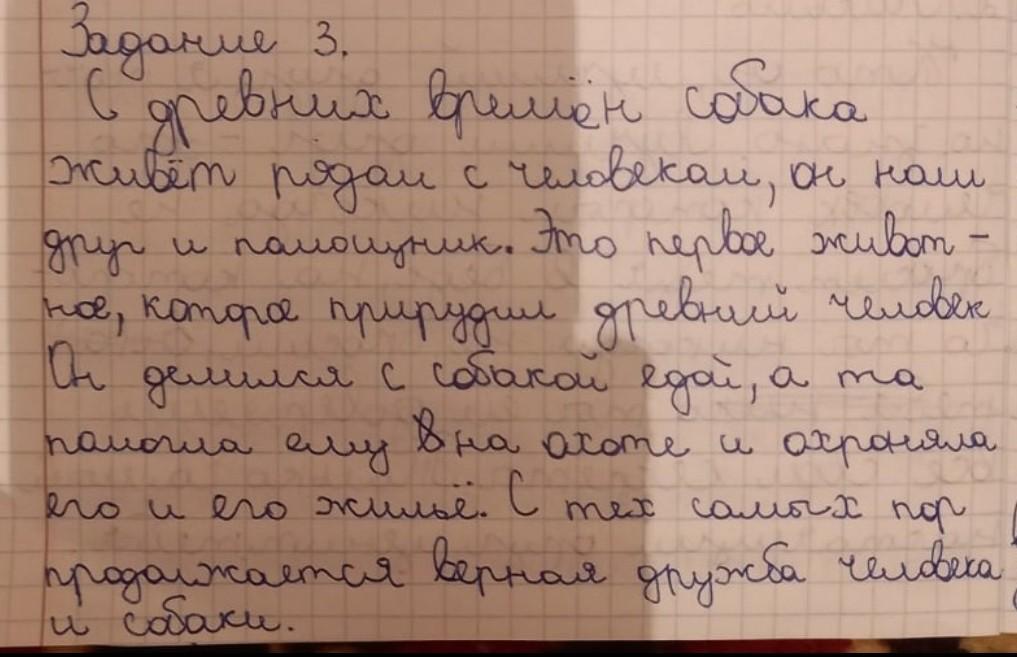 Задание 3.
С древних времён собака
живёт рядом с человеком, он наш
друг и помощник. Это первое живот-
ное, которое прирудил древний человек
Он делился с собакой едой, а та
помогла ему в на охоте и охроняла
его и его жильё. С тех самых пор
продолжается верная дружба человека
и собаки.